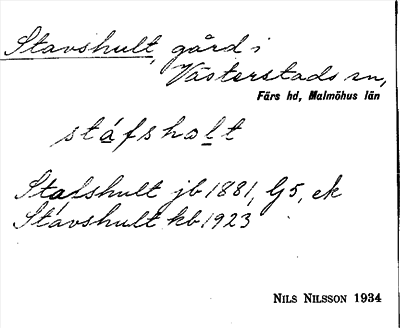 Stavshult, gård i
Västerstads sn,
Färs hd, Malmöhus län
stáfshol̲t
Stafshult jb 1881, G5, ek
Stavshult kb 1923
NILS NILSSON 1934